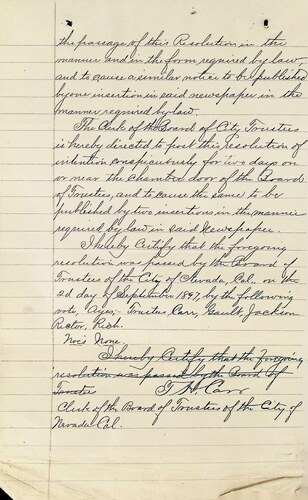 the passage of this Resolution in the
manner and in the form required by law,
and to cause a similar notice to be published
by one insertion in said newspaper in the
manner required by law.
The Clerk of the Board of City Trustees
is hereby directed to post this resolution of
intention conspicuously for two days on
or near the chamber door of the Board
of Trustees, and to cause the same to be
published by two insertions in the manner
required by law in said Newspaper.
I hereby Certify that the foregoing
resolution was passed by the Board of
Trustees of the City of Nevada, Cal. on the
2d day of September 1897 by the following
vote, Ayes:- Trustees Carr, Gault Jackson
Rector, Rich.
Noes None.
I hereby Certify that the foregoing
resolution was passed by the Board of
Trustees T. H. Carr
Clerk of the Board of Trustees of the City of
Nevada Cal.